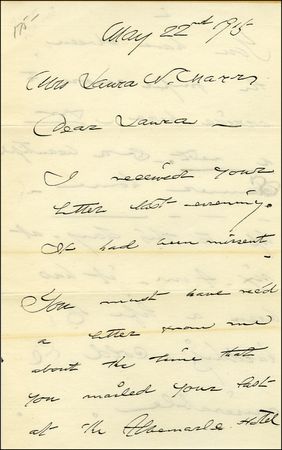 May 22nd 1915
Mrs Laura N.
Dear Laura —
I received your
letter last evening.
It had been missent
You must have rec'd
a letter from me
about the time that
you mailed your last
at the Albemarle Hotel